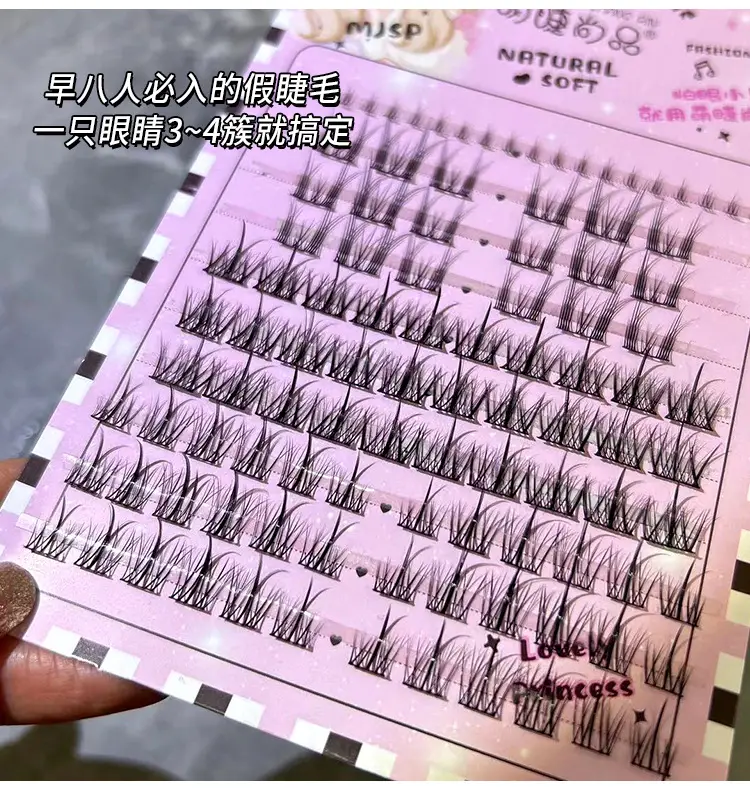 MJSP
NATURAL
SOFT
FASHION
早八人必入的假睫毛
一只眼睛3~4簇就搞定
Lovely
Princess